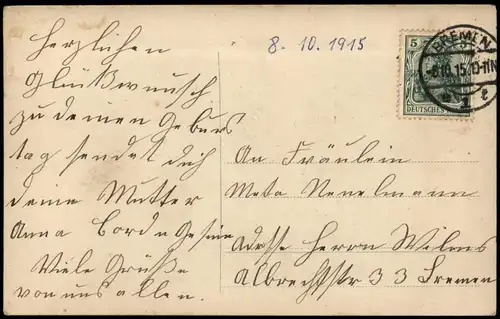 Herzlichen
Glückwunsch
zu deinen Geburs
tag sendet dich
deine Mutter
Anna
Viele Grüße
von uns allen.
8. 10. 1915
5
DEUTSCHES
BREMEN
-8.10.15.10-11N
1 t
An Fräulein
Meta
Adesse Herrn Wilms
Albrechtstr 33 Bremen